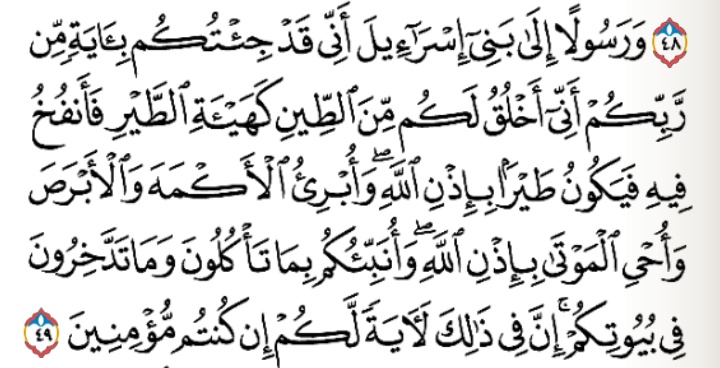 ﴿٤٨﴾ وَرَسُولًا إِلَىٰ بَنِىٓ إِسْرَٰٓءِيلَ أَنِّى قَدْ جِئْتُكُم بِـَٔايَةٍ مِّن
رَّبِّكُمْ أَنِّىٓ أَخْلُقُ لَكُم مِّنَ ٱلطِّينِ كَهَيْـَٔةِ ٱلطَّيْرِ فَأَنفُخُ
فِيهِ فَيَكُونُ طَيْرًۢا بِإِذْنِ ٱللَّهِ ۖ وَأُبْرِئُ ٱلْأَكْمَهَ وَٱلْأَبْرَصَ
وَأُحْىِ ٱلْمَوْتَىٰ بِإِذْنِ ٱللَّهِ ۖ وَأُنَبِّئُكُم بِمَا تَأْكُلُونَ وَمَا تَدَّخِرُونَ
فِى بُيُوتِكُمْ ۚ إِنَّ فِى ذَٰلِكَ لَـَٔايَةً لَّكُمْ إِن كُنتُم مُّؤْمِنِينَ ﴿٤٩﴾